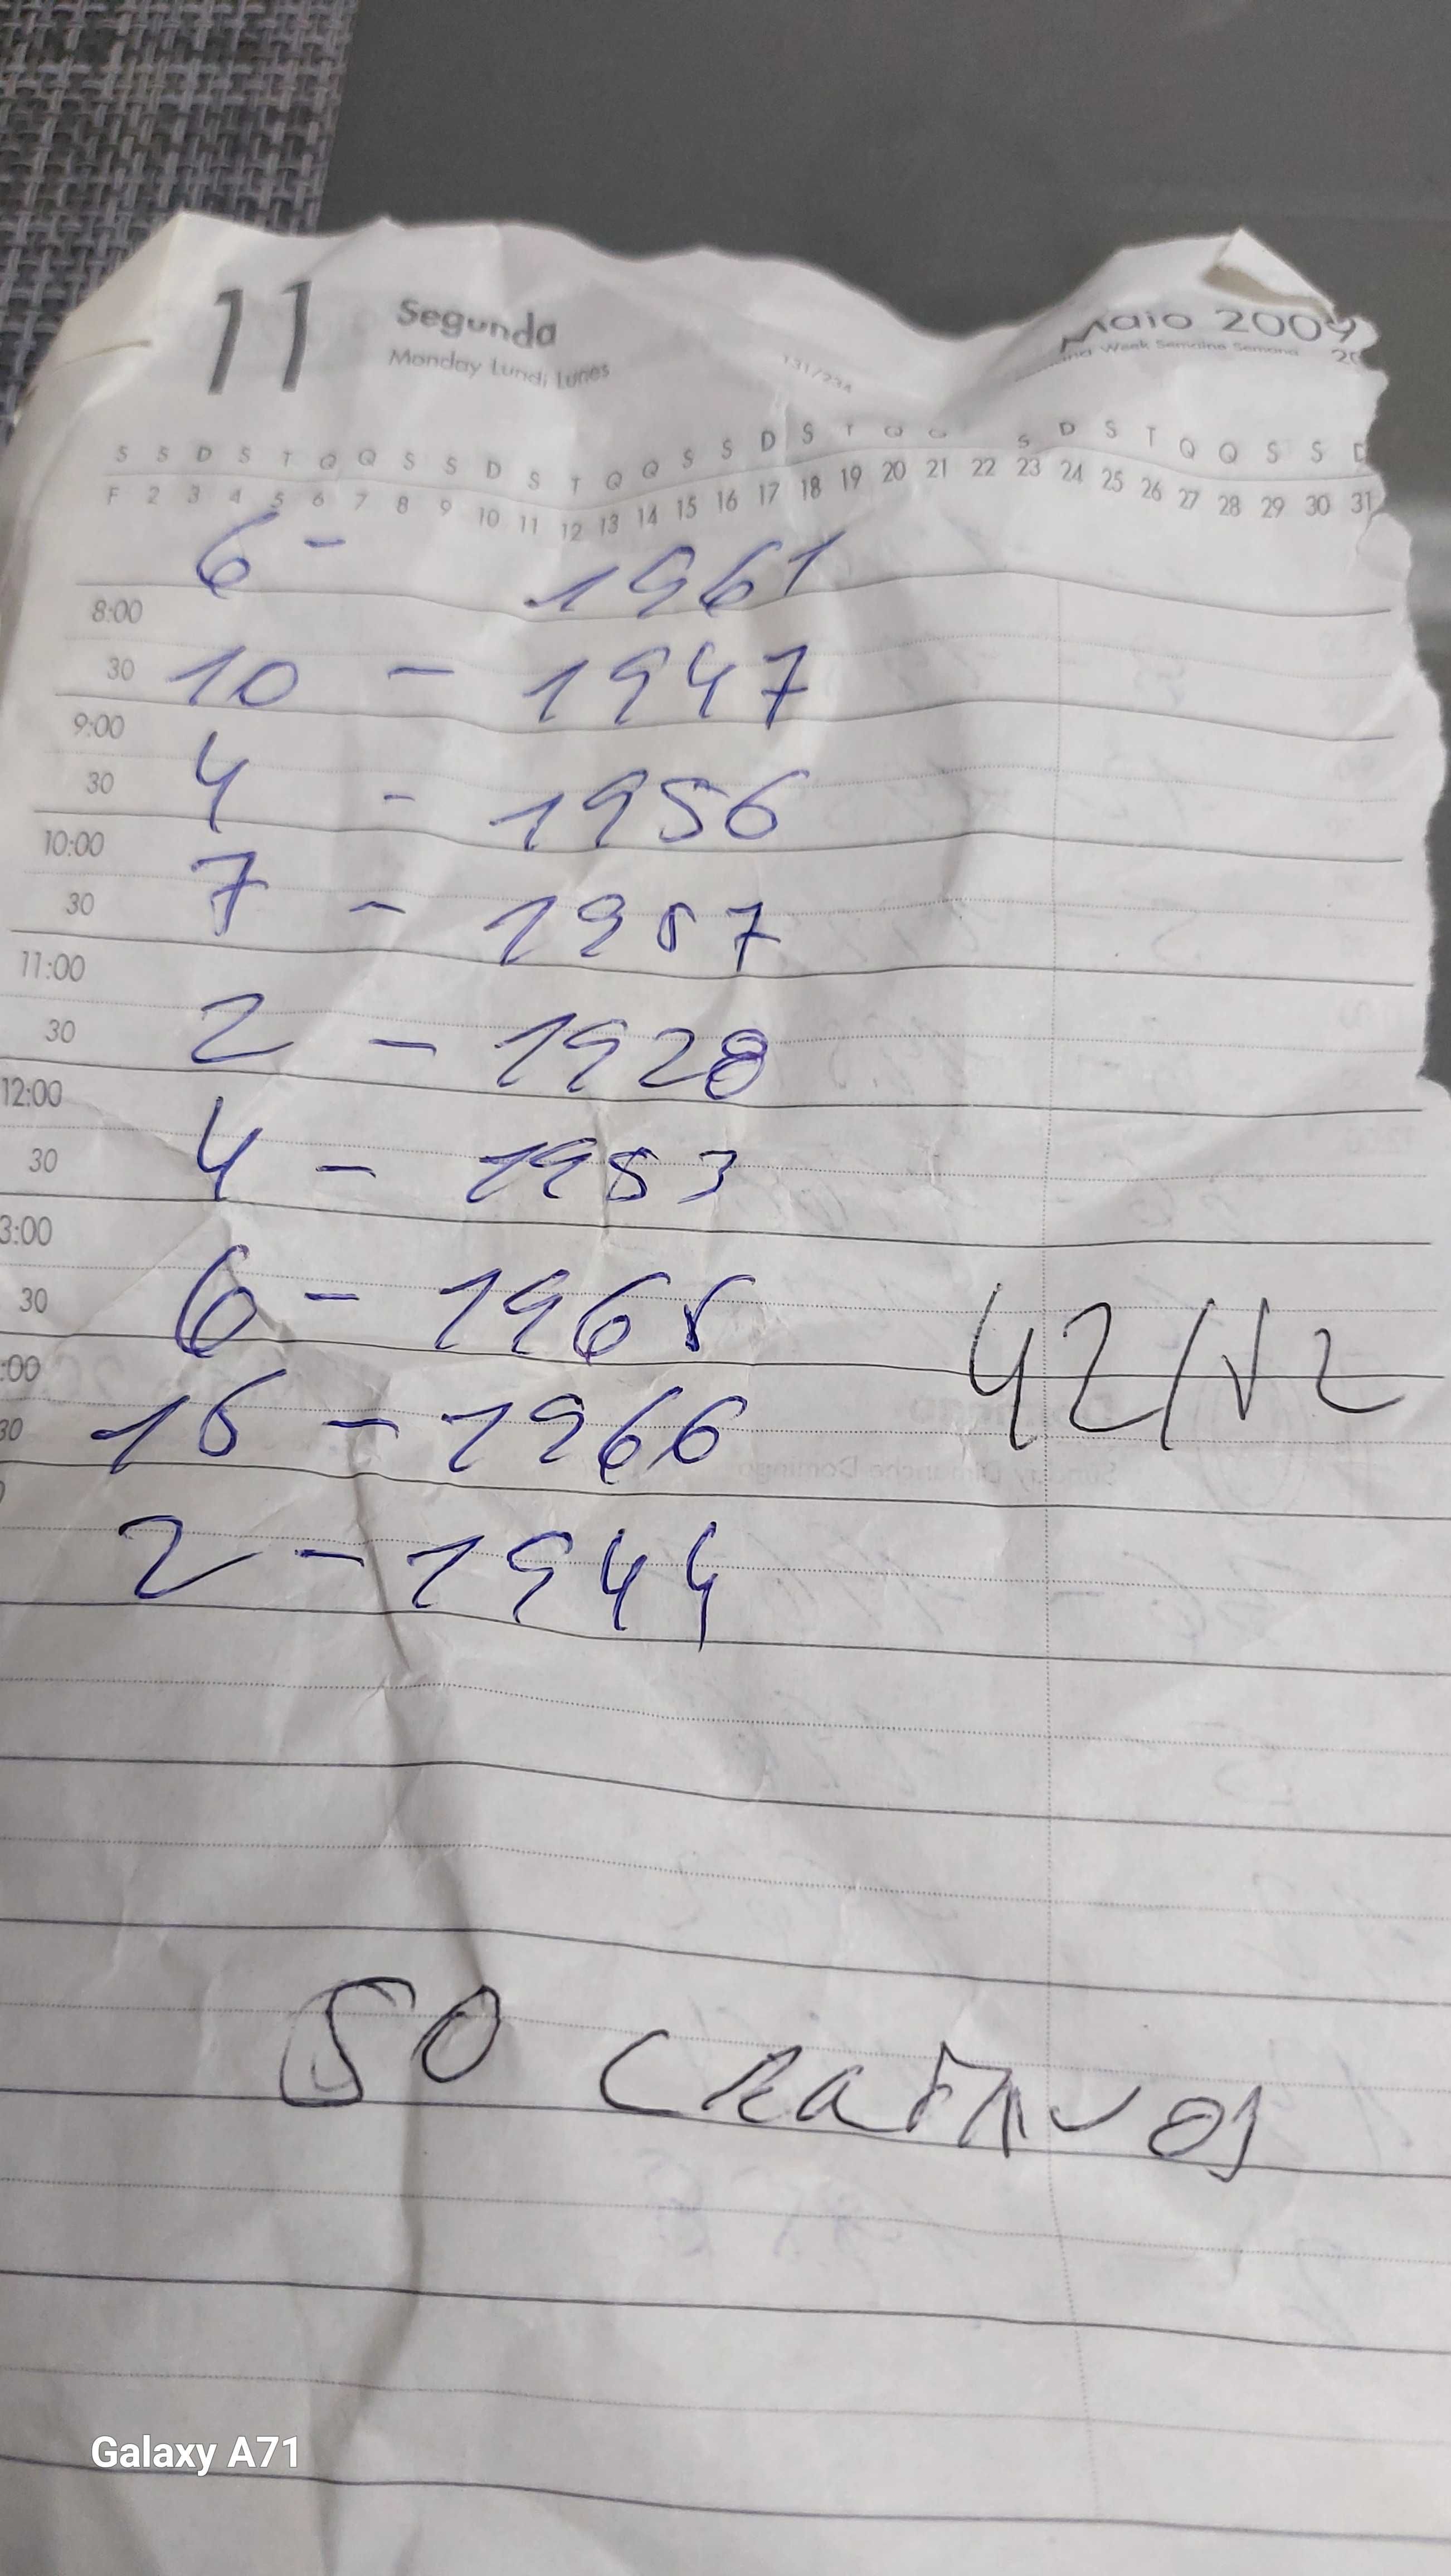 11 Segunda Maio 2009
Monday Lundi Lunes 131/234 Week Semaine Semana
S S D S T Q Q S S D S T Q Q S S D S T Q Q S D S T Q Q S S D
F 2 3 4 5 6 7 8 9 10 11 12 13 14 15 16 17 18 19 20 21 22 23 24 25 26 27 28 29 30 31
6 - 1961
8:00
30 10 - 1947
9:00
30 4 - 1956
10:00
30 7 - 1957
11:00
30 2 - 1928
12:00
30 4 - 1953
3:00
30 6 - 1965
:00 42/12
30 15 - 1966
2 - 1944
50 CRATIVOS
Galaxy A71